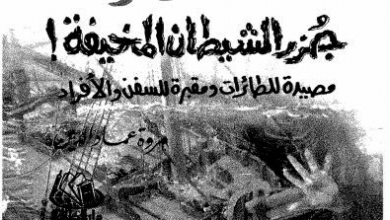 جزر الشيطان المخيفة !
مصيدة للطائرات ومقبرة للسفن والأفراد
مروة عماد الدين